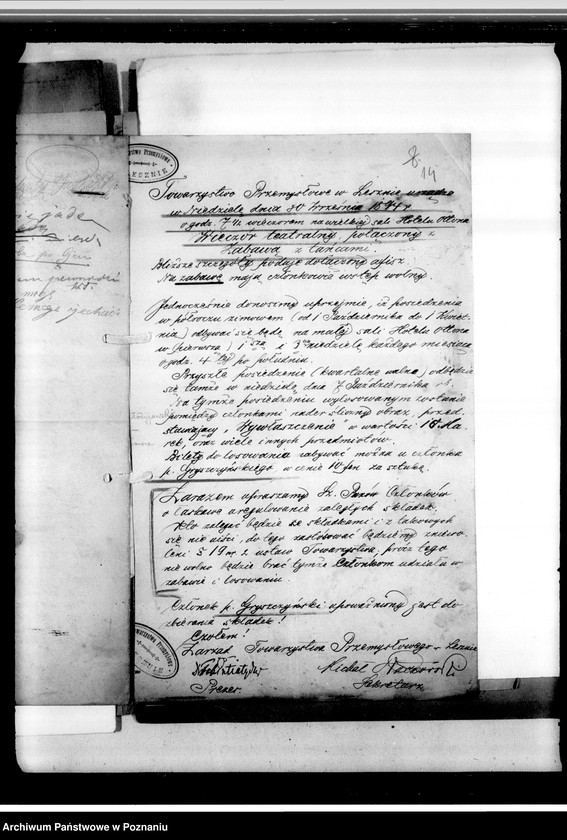 8
14
Towarzystwo Przemysłowe w Lesznie
w Niedzielę dnia 30 Września
o godz. 7 ½ wieczorem na wielkiej sali Hotelu Ottona
Wieczór teatralny połączony z
Zabawą z tańcami.
Bliższe szczegóły podaje dołączony afisz.
Na zabawę mają członkowie wstęp wolny.
Jednocześnie donosimy uprzejmie, iż posiedzenia
w półroczu zimowem (od 1 Października do 1 Kwiet-
nia) odbywać się będą na małej sali Hotelu Ottona
w (pierwszą) 1szą i 3cią niedzielę każdego miesiąca
o godz. 4tej po południu.
Przyszłe posiedzenie (kwartalne walne) odbędzie
się tamże w niedzielę dnia 7 Października
Na tymże posiedzeniu wylosowanym zostanie
pomiędzy członkami nader śliczny obraz, przed-
stawiający „Wywłaszczenie" w wartości 18 Ma-
rek, oraz wiele innych przedmiotów.
Bilety do losowania nabywać można u członka
p. Gryszczyńskiego w cenie 10 fen za sztukę.
Zarazem upraszamy Sz. Panów Członków
o łaskawe uregulowanie zaległych składek.
Kto zalegać będzie ze składkami i z takowych
się nie uiści, do tego zastosować będziemy zniewo-
leni § 19 nr 2 ustaw Towarzystwa, prócz tego
nie wolno będzie brać tymże Członkom udziału w
zabawie i losowaniu.
Członek p. Gryszczyński upoważniony jest do
zbierania składek!
Czołem!
Zarząd Towarzystwa Przemysłowego w Lesznie
Michał
Prezes.
Sekretarz
Archiwum Państwowe w Poznaniu